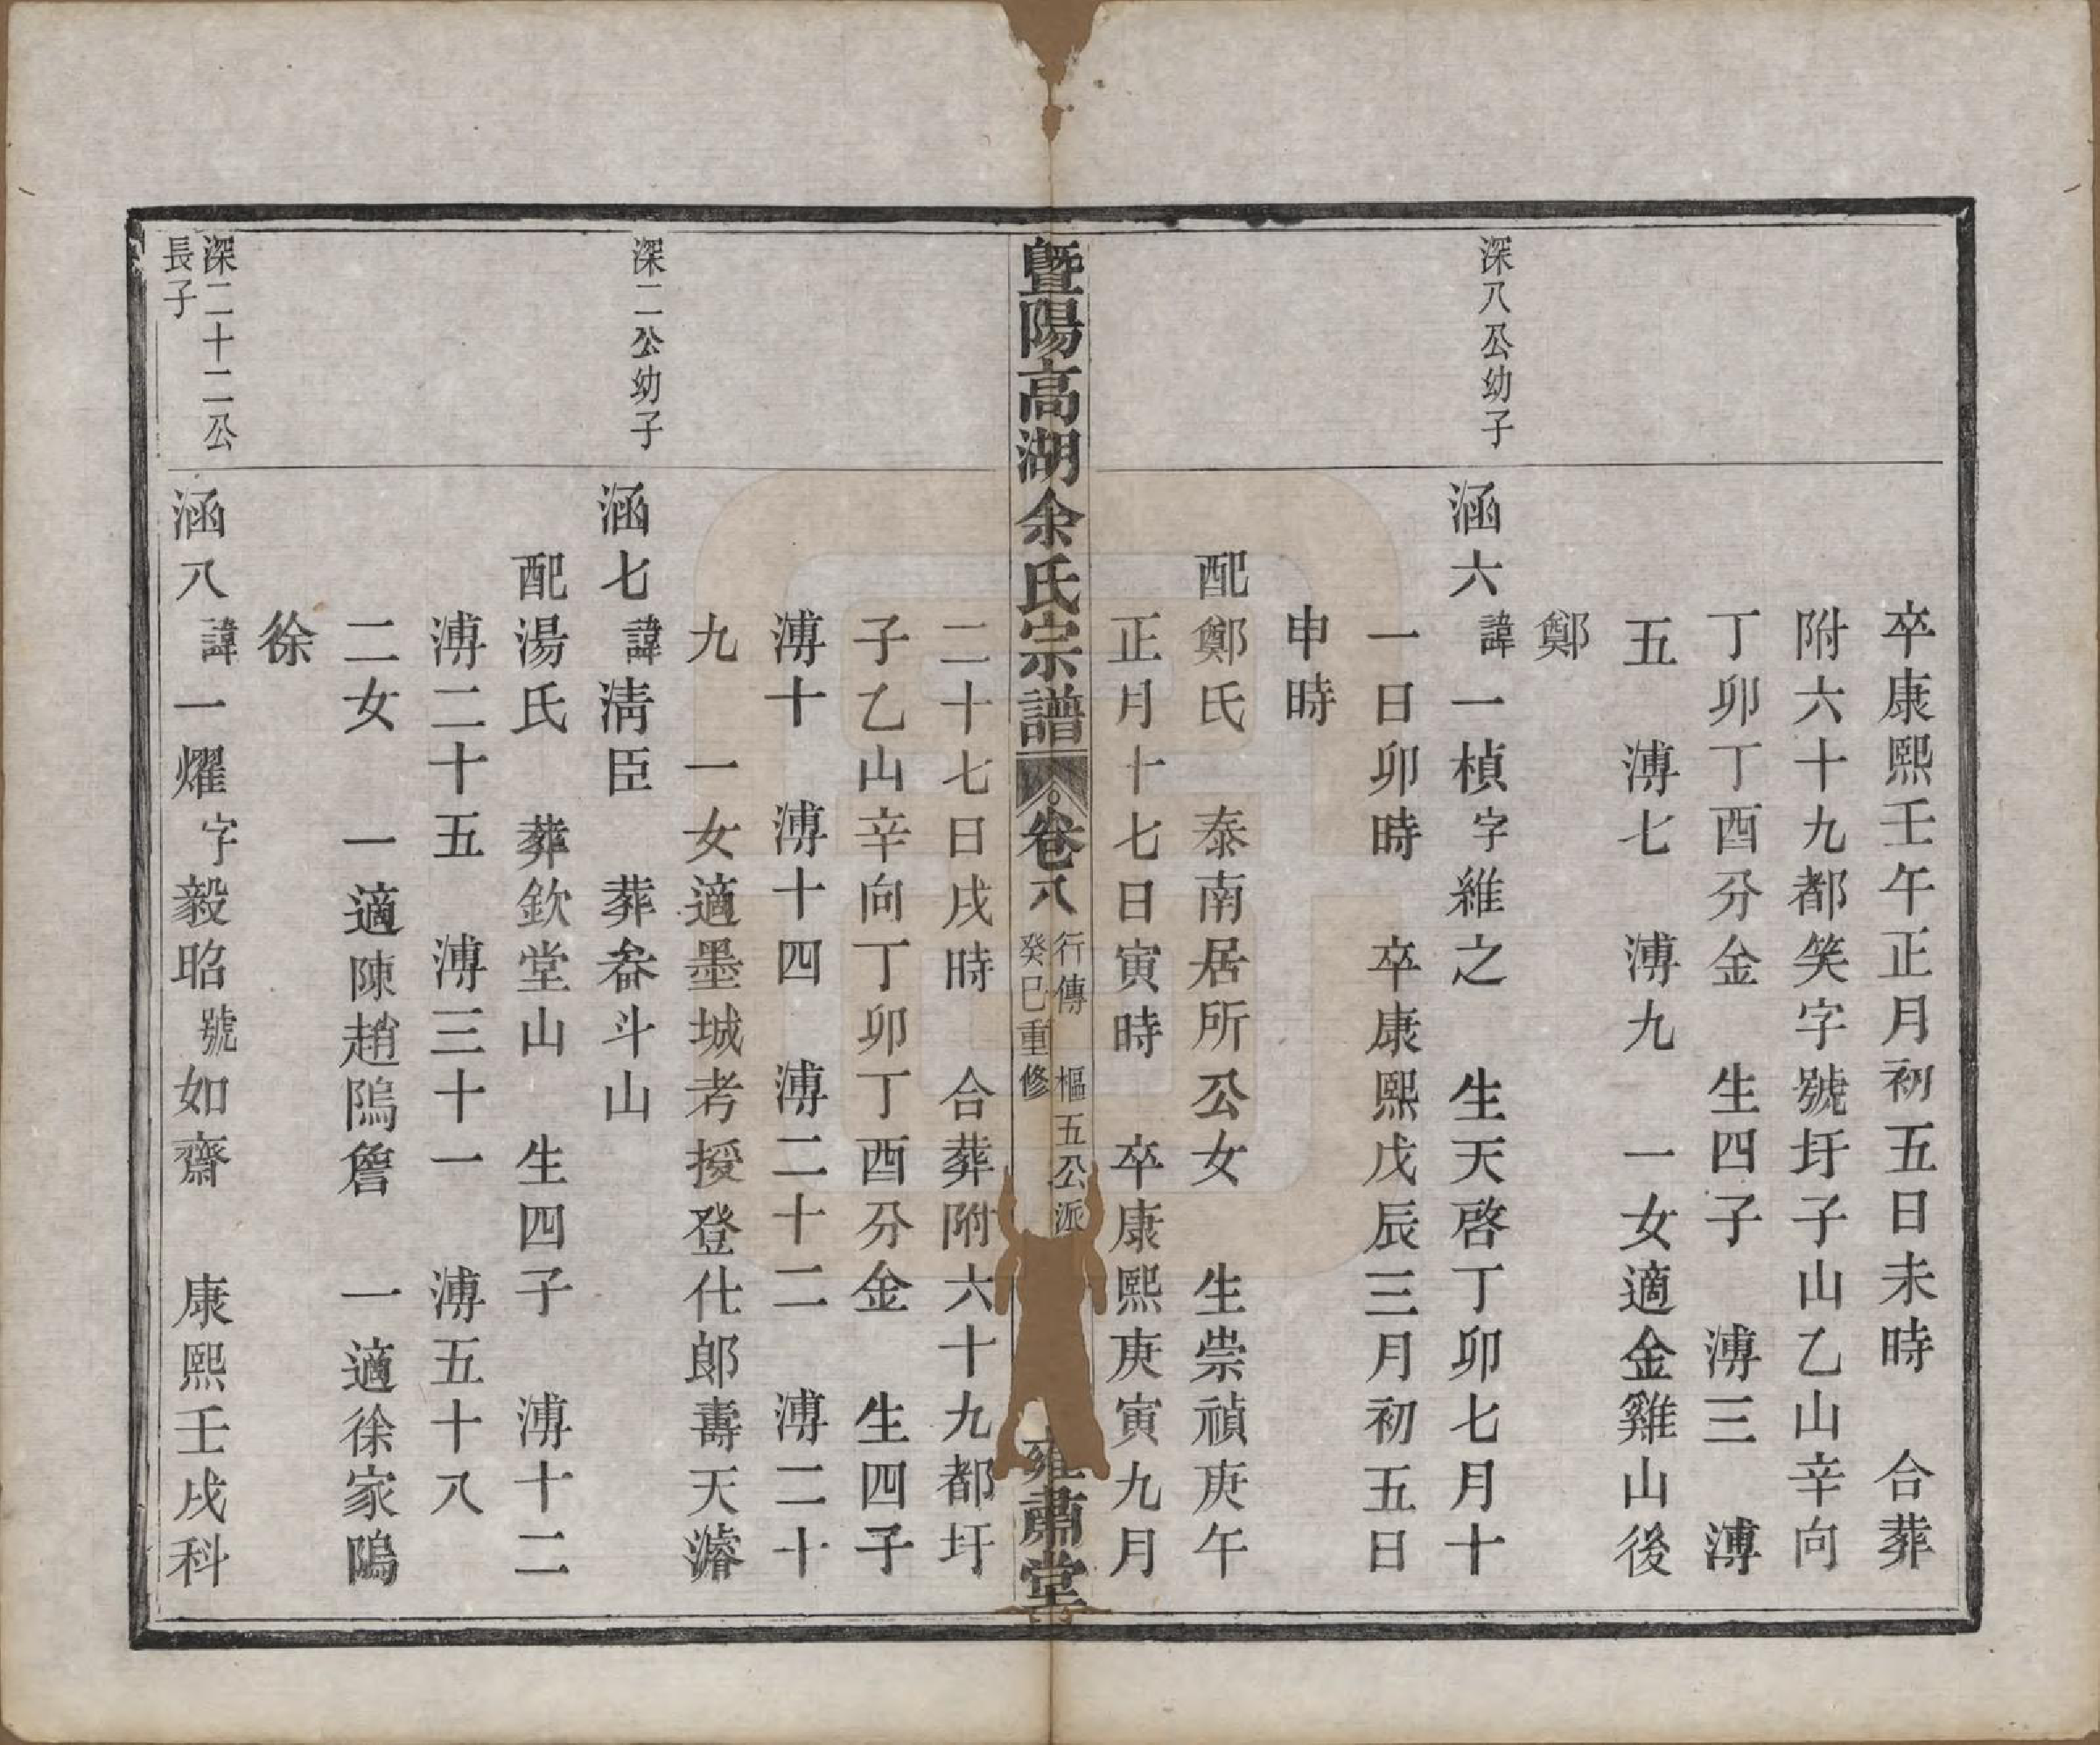 卒康熙壬午正月初五日未時　合葬
附六十九都笑字號圩子山乙山辛向
丁卯丁酉分金　生四子　溥三　溥
五　溥七　溥九　一女適金雞山後
鄭
深八公幼子
涵六諱一楨字維之　生天啓丁卯七月十
一日卯時　卒康熙戊辰三月初五日
申時
配鄭氏　泰南居所公女　生崇禎庚午
正月十七日寅時　卒康熙庚寅九月
暨陽高湖余氏宗譜　卷八　行傳　樞五公派　癸巳重修　雍肅堂
二十七日戌時　合葬附六十九都圩
子乙山辛向丁卯丁酉分金　生四子
溥十　溥十四　溥二十二　溥二十
九　一女適墨城考授登仕郎壽天濬
深二公幼子
涵七諱淸臣　葬叅斗山
配湯氏　葬欽堂山　生四子　溥十二
溥二十五　溥三十一　溥五十八
二女　一適陳趙隖詹　一適徐家隖
徐
深二十二公
長子
涵八諱一燿字毅昭號如齋　康熙壬戌科